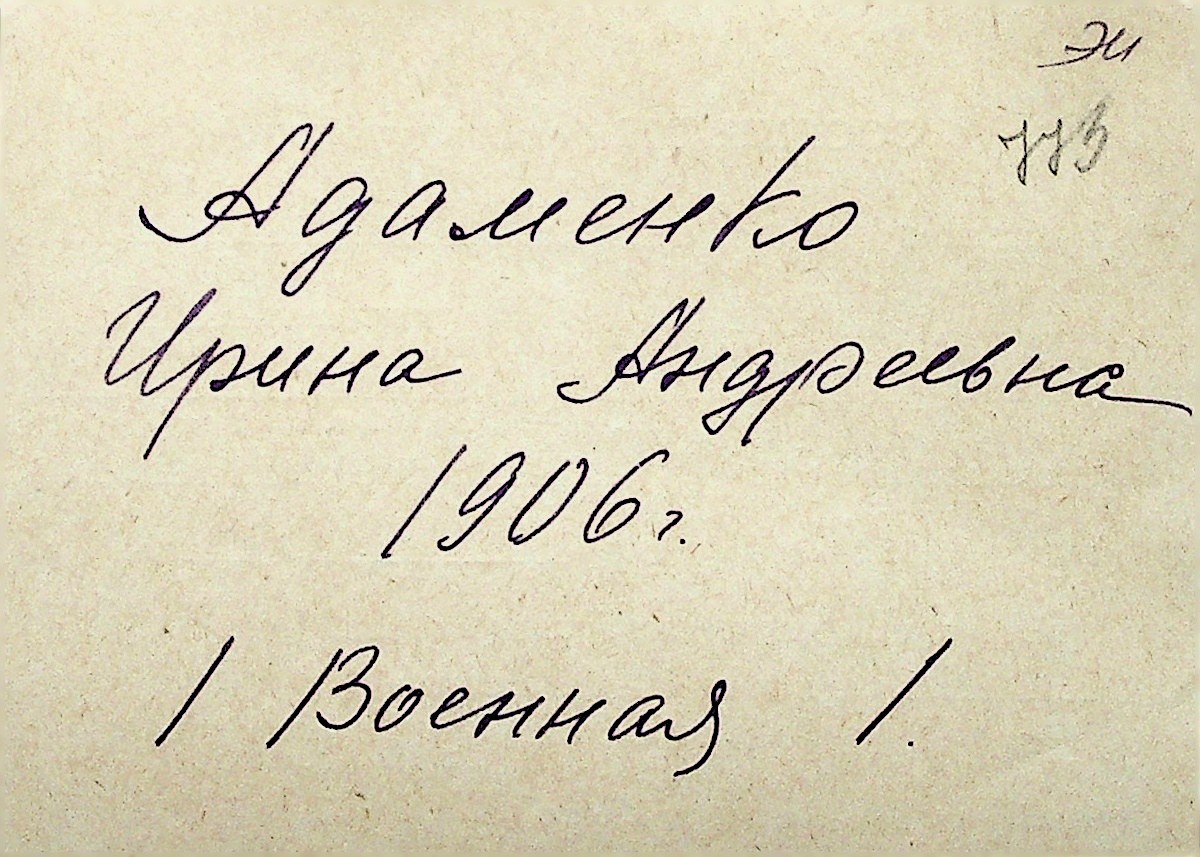 ЭИ
773
Адаменко
Ирина Андреевна
1906 г.
/ Военная /.